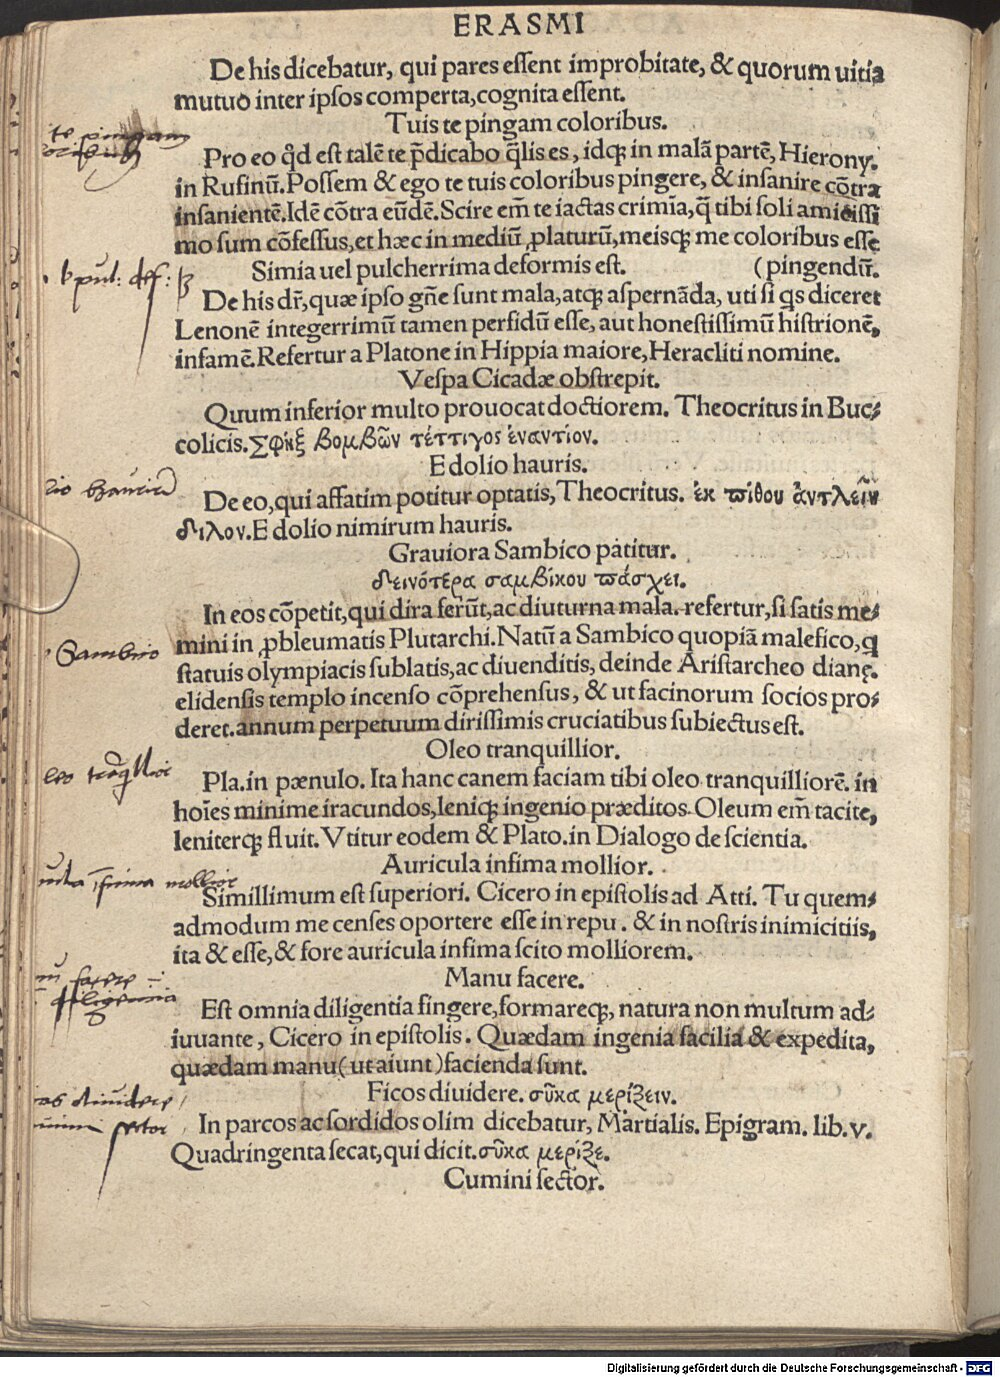 ERASMI
De his dicebatur, qui pares essent improbitate, & quorum uitia
mutuo inter ipsos comperta, cognita essent.
Tuis te pingam coloribus.
Pro eo qd̄ est talē te p̄dicabo q̄lis es, idq; in malā partē, Hierony.
in Rufinū. Possem & ego te tuis coloribus pingere, & insanire cōtra
insanientē. Idē cōtra eūdē. Scire em̄ te iactas crimīa, q̄ tibi soli amicissi
mo sum cōfessus, et hæc in mediū ꝓlaturū, meisq; me coloribus esse
Simia uel pulcherrima deformis est. (pingendū.
De his dr̄, quæ ipso gn̄e sunt mala, atq; aspernāda, uti si qs diceret
Lenonē integerrimū tamen perfidū esse, aut honestissimū histrionē,
infamē. Refertur a Platone in Hippia maiore, Heracliti nomine.
Vespa Cicadæ obstrepit.
Quum inferior multo prouocat doctiorem. Theocritus in Buc-
colicis. Σφὴξ βομβῶν τέττιγος ἐναντίον.
E dolio hauris.
De eo, qui affatim potitur optatis, Theocritus. ἐκ πίθου ἀντλεῖν
δῖλον. E dolio nimirum hauris.
Grauiora Sambico patitur.
δεινότερα σαμβίκου πάσχει.
In eos cōpetit, qui dira ferūt, ac diuturna mala. refertur, si satis me-
mini in ꝓbleumatis Plutarchi. Natū a Sambico quopiā malefico, q
statuis olympiacis sublatis, ac diuenditis, deinde Aristarcheo dianę.
elidensis templo incenso cōprehensus, & ut facinorum socios pro-
deret. annum perpetuum dirissimis cruciatibus subiectus est.
Oleo tranquillior.
Pla. in pænulo. Ita hanc canem faciam tibi oleo tranquilliorē. in
hoīes minime iracundos, leniq; ingenio præditos. Oleum em̄ tacite,
leniterq; fluit. Vtitur eodem & Plato. in Dialogo de scientia.
Auricula infima mollior.
Simillimum est superiori. Cicero in epistolis ad Atti. Tu quem-
admodum me censes oportere esse in repu. & in nostris inimicitiis,
ita & esse, & fore auricula infima scito molliorem.
Manu facere.
Est omnia diligentia fingere, formareq;, natura non multum ad-
iuuante, Cicero in epistolis. Quædam ingenia facilia & expedita,
quædam manu (ut aiunt) facienda sunt.
Ficos diuidere. σῦκα μερίζειν.
In parcos ac sordidos olim dicebatur, Martialis. Epigram. lib. v.
Quadringenta secat, qui dicit. σῦκα μερίζε.
Cumini sector.
te pingam
Sambico
infima mollior
facere
diligentia
diuidere
sector
Digitalisierung gefördert durch die Deutsche Forschungsgemeinschaft - DFG